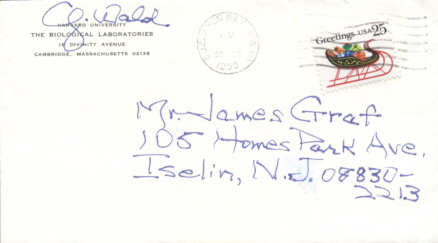 G. Wald
HARVARD UNIVERSITY
THE BIOLOGICAL LABORATORIES
16 DIVINITY AVENUE
CAMBRIDGE, MASSACHUSETTS 02138
PM
1990
Greetings USA 25
Mr. James Graf
105 Homes Park Ave.
Iselin, N.J. 08830-
2213